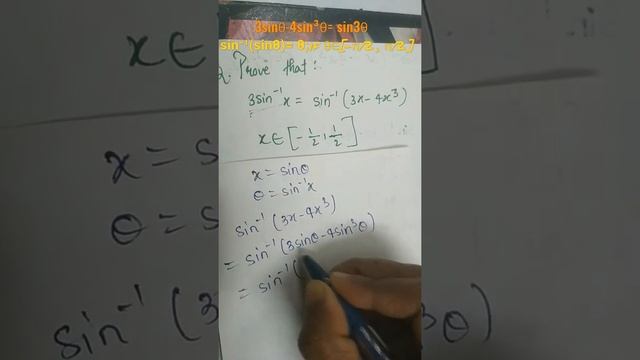 3sinθ-4sin³θ= sin3θ
sin⁻¹(sinθ)= θ,
Prove that :
3sin⁻¹x = sin⁻¹(3x-4x³)
x∈[-1/2, 1/2]
x = sinθ
θ = sin⁻¹x
sin⁻¹(3x-4x³)
= sin⁻¹(3sinθ-4sin³θ)
= sin⁻¹(